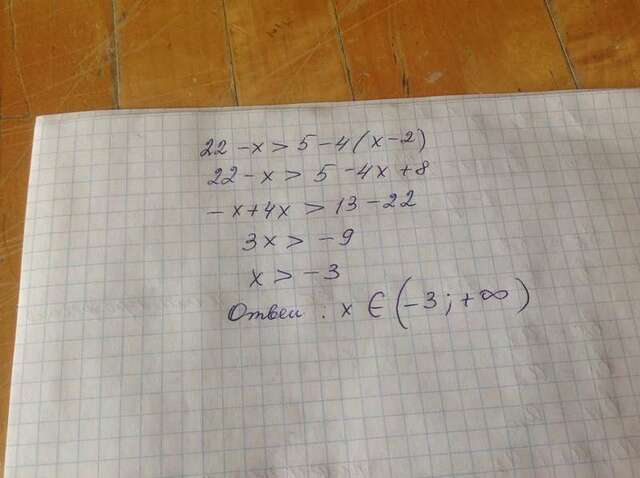 22-x>5-4(x-2)
22-x>5-4x+8
-x+4x>13-22
3x>-9
x>-3
Ответ: x∈(-3;+∞)